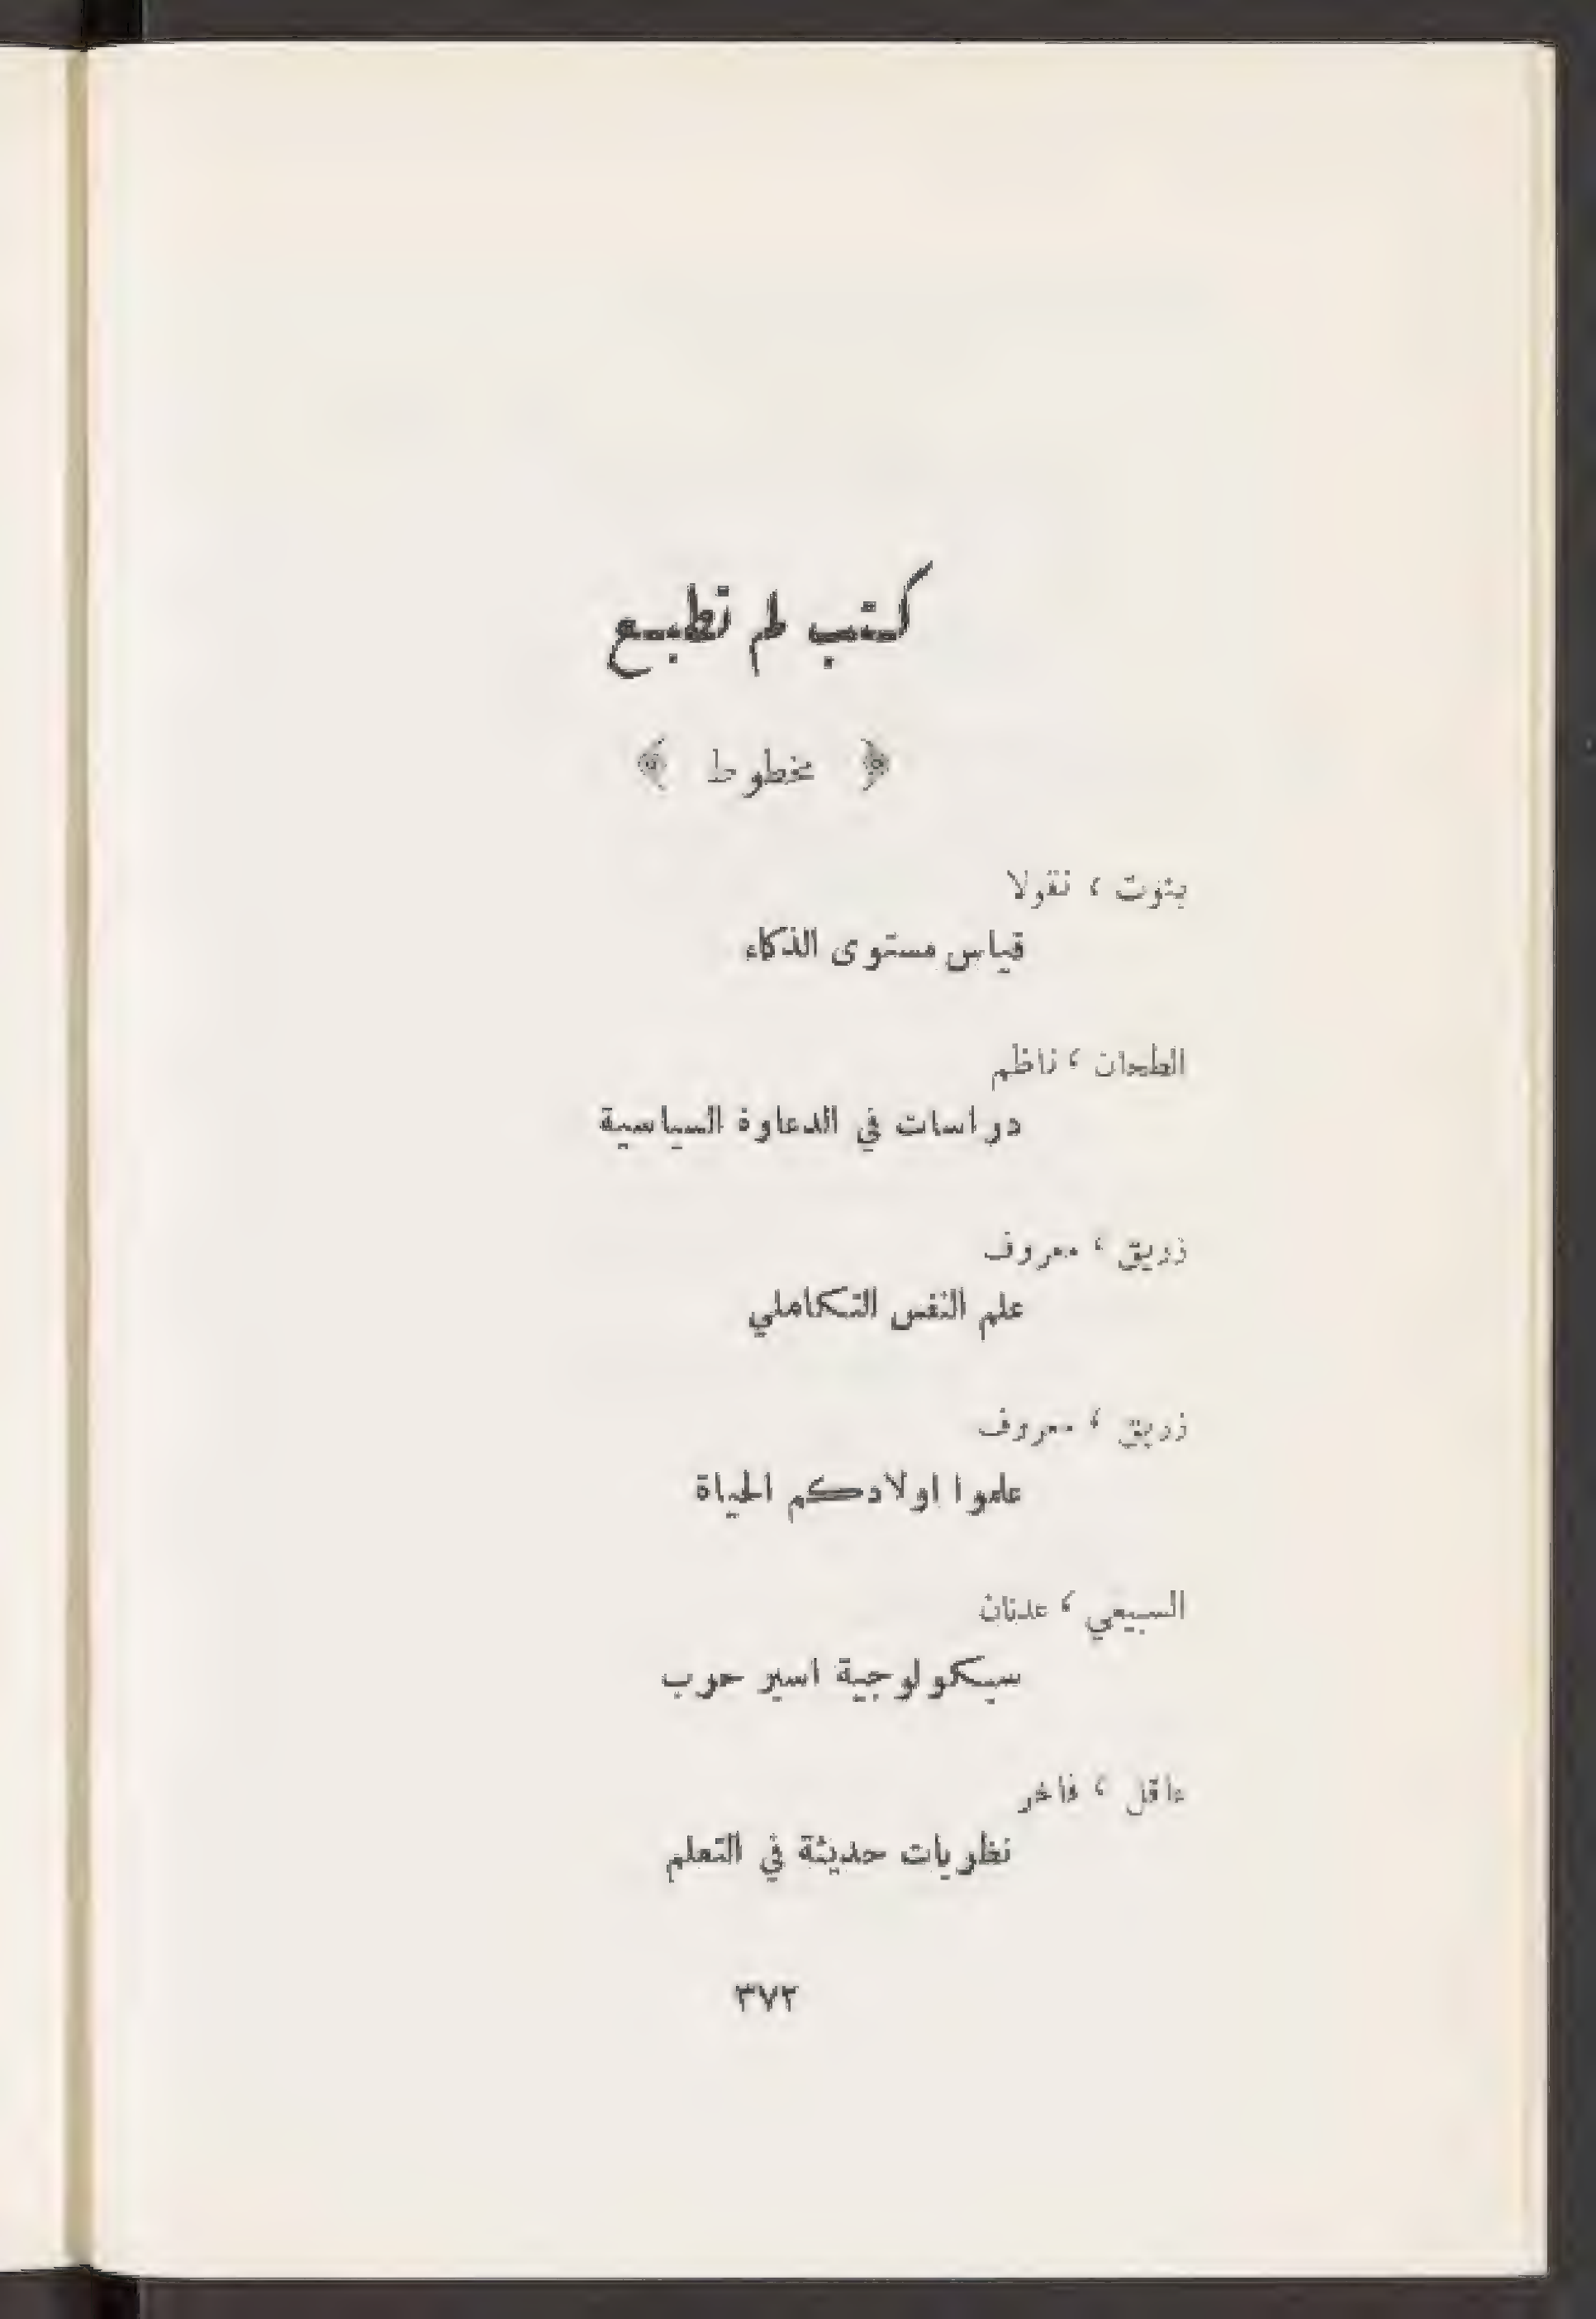 كتب لم تطبع
﴿ مخطوط ﴾
نقولا
قياس مستوى الذكاء
الطحان ، ناظم
دراسات في الدعاوة السياسية
زريق ، معروف
علم النفس التكاملي
زريق ، معروف
علموا اولادكم الحياة
السبيعي ، عدنان
سيكولوجية اسير حرب
عاقل ، فاخر
نظريات حديثة في التعلم
٣٧٢